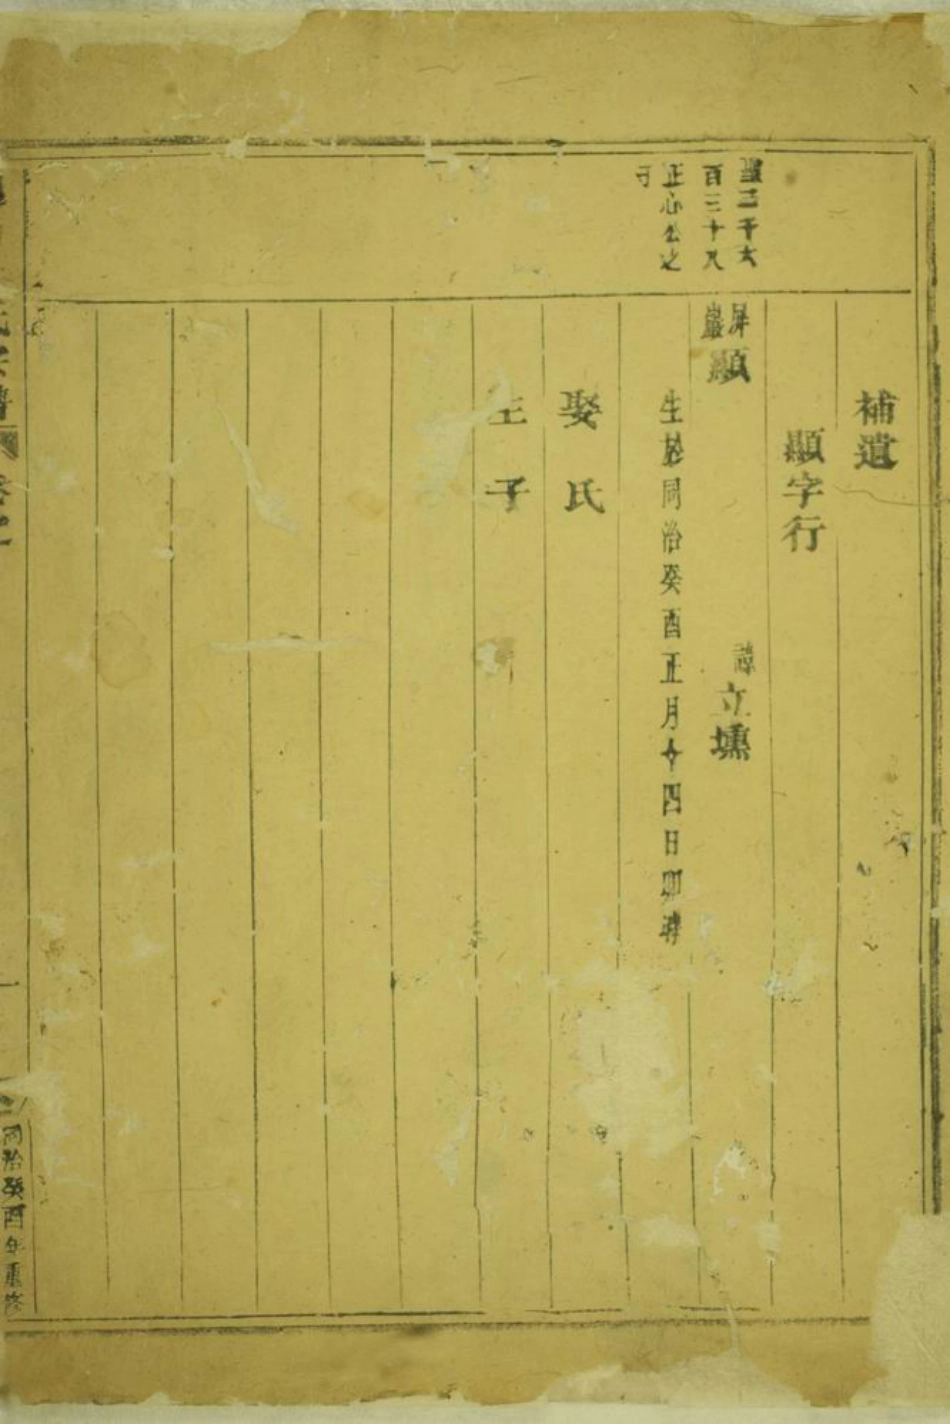 補遺
顯字行
二千六
百三十八
正心公之
子
屏
巖
顯
諱
立壎
生於同治癸酉正月廿四日卯時
娶 氏
生 子
氏宗譜 卷之
同治癸酉年重修